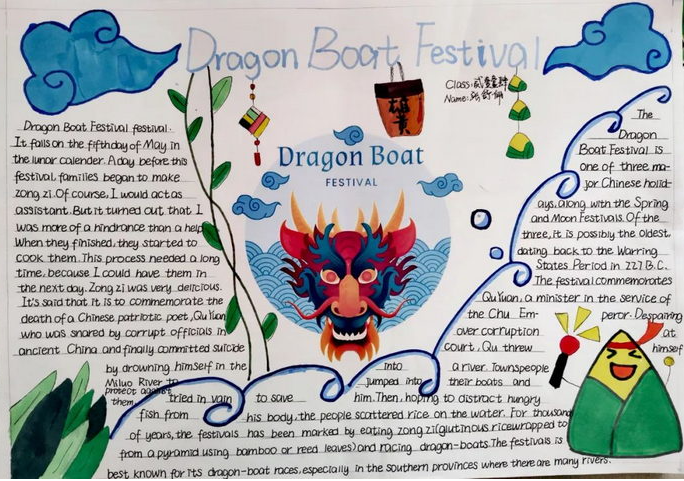 Dragon Boat Festival
Class:贰壹壹班
Name:
雄黄
Dragon Boat
FESTIVAL
Dragon Boat Festival festival.
It falls on the fifthday of May in
the lunar calender. A day before this
festival, families began to make
zong zi. Of course, I would act as
assistant. But it turned out that I
was more of a hindrance than a help
When they finished, they started to
cook them. This process needed a long
time, because I could have them in
the next day. Zong zi was very delicious.
It's said that it is to commemorate the
death of a Chinese patriotic poet, Qu Yuan,
who was snared by corrupt officials in
ancient China and finally committed suicide
by drowning himself in the
Miluo River to
protect against
them.
The
Dragon
Boat Festival is
one of three ma-
jor Chinese holid-
ays, along with the Spring
and Moon Festivals. Of the
three, it is possibly the oldest,
dating back to the Warring
States Period in 227 B.C.
The festival commemorates
Qu Yuan, a minister in the service of
the Chu Em- peror. Despairing
over corruption at
court, Qu threw himself
into a river. Townspeople
jumped into their boats and
tried in vain to save him. Then, hoping to distract hungry
fish from his body, the people scattered rice on the water. For thousand
of years, the festivals has been marked by eating zong zi(glutinous ricewrapped to
from a pyramid using bamboo or reed leaves) and racing dragon-boats. The festivals is
best known for its dragon-boat races, especially in the southern provinces where there are many rivers.